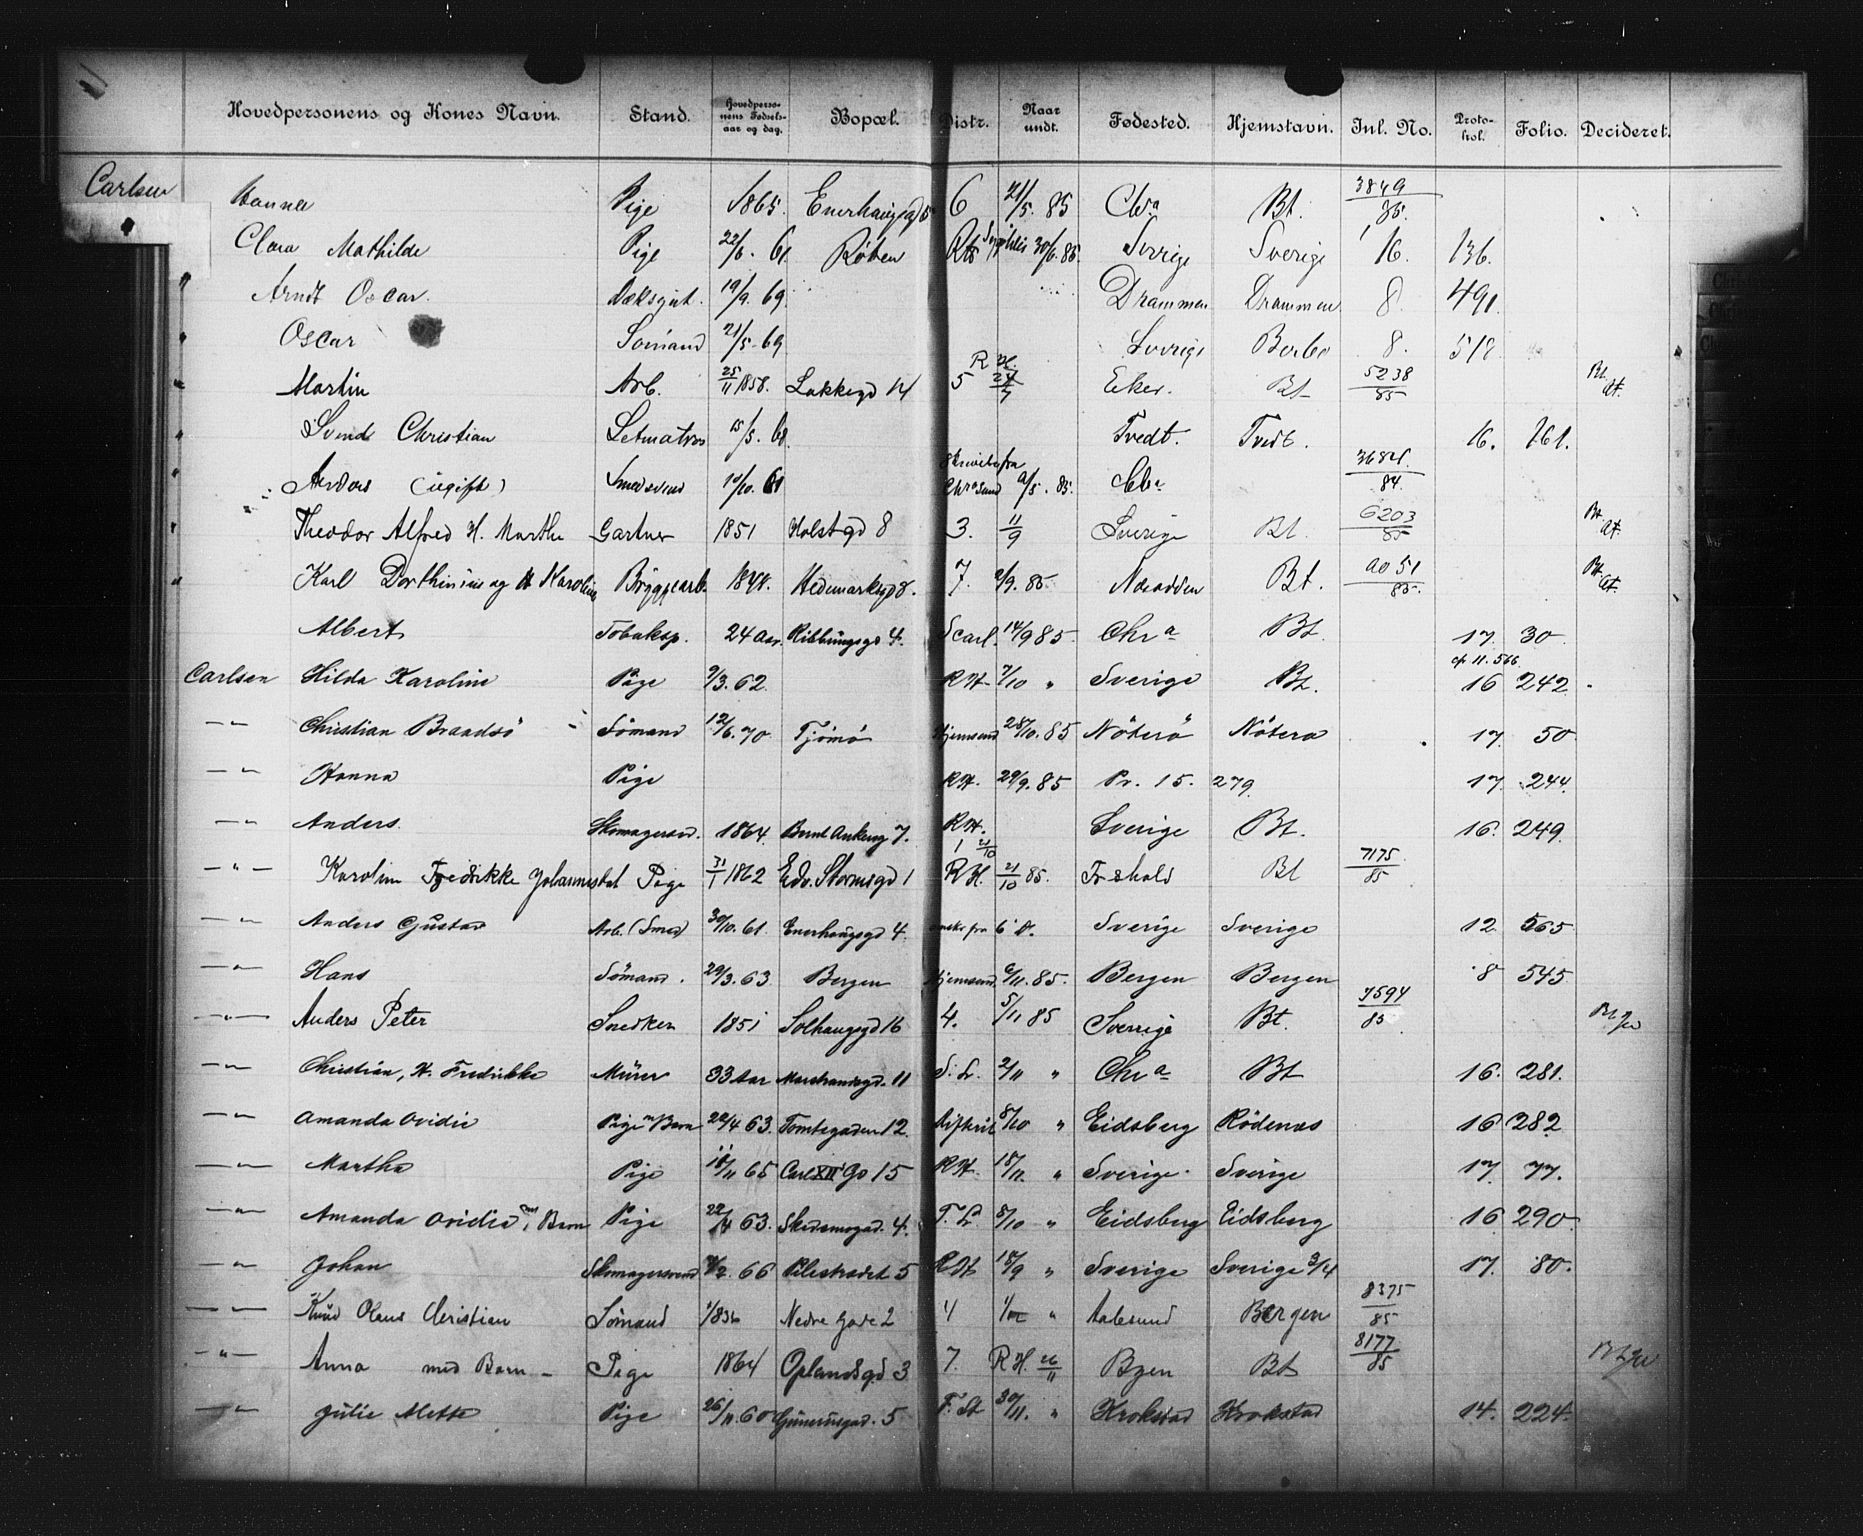 Hovedpersonens og Kones Navn. Stand. Hovedpersonens Fødselsaar og dag. Bopæl. Distr. Naar undt. Fødested. Hjemstavn. Inl. No. Protokol. Folio. Decideret.
Carlsen Hanna Pige 1865. Enerhaugsgd 6 21/5. 85 Chra Bt. 3849/85.
Clara Mathilde Pige 22/6. 61 Røken 30/6.85 Sverige Sverige 16. 136.
" Arndt Oscar. 19/9. 69. Drammen Drammen 8. 491.
" Oscar Sømand 21/5-69 Sverige 8.
" Martin Arb. 25/11 1858. Lakkegd 14 5 R H. Eker. Bt 5238/85 Bt
" Svend Christian 15/5. Tvedt. Tvedt. 16. 161.
" Anders (ugift) Smedsvend 10/10. 61 Chrasund 85. 84.
" Theodor Alfred H. Marthe Gartner 1851 Holstgd 8 3. 11/9 Sverige Bt. 6203/85 Bt
" Karl og H Karoline Bryggearb. Hedemarksgd 8. 7. 9. 85 Næsodden Bt. 85. Bt
Albert Tobaksp. 24 Aar. Ribbungsgd 4. Scarl. 14/9 85. Chra Bt. 17. 30.
Carlsen Hilda Karoline Pige 9/3. 62. RH 7/10 " Sverige Bt. cfr 11. 566 16 242.
—"— Christian Brandsö Sömand 12/6. 70 Tjömö Hjemsend 28/10. 85 Nöterö Nöterö 17. 50
—"— Hanna Pige RH. 29/9. 85 Pr. 15. 279. 17. 244.
—"— Anders. Skomagersvd. 1864. Bernt Ankersg 7. RH. Sverige Bt. 16. 249.
—"— Karoline Fredrikke Johannesdat Pige 31/1 1862 Edv. Stormsgd 1 1 21/10 R H. 21/10 85. Fr.shald Bt 7175/85
—"— Anders Gustav Arb. (Smed) 30/10. 61 Enerhaugsgd 4. fra 6 D. Sverige Sverige 12 565
—"— Hans Sömand. 29/3. 63. Bergen Hjemsend 6/11. 85. Bergen Bergen 8 545
—"— Anders Peter Snedker 1851 Solhaugsgd 16 4. 5/11 85 Sverrige Bt. 7594/85. Bt
—"— Christian, H. Fredrikke Mürer 33 Aar Marstrandsgd. 11 S. L. 2/11 " Chra Bt 16. 281.
—"— Amanda Ovidie Pige m Barn 22/4 63. Tomtegaden 12. 8/10 " Eidsberg Rödenæs 16 282
—"— Martha Pige 18/11 65 Carl XII Gd 15 RH. 18/11. " Sverige. Sverige 17. 77.
—"— Amanda Ovidia, Barn Pige 22/4 63. Skedsmogad. 4. F. L 8/10 " Eidsberg Eidsberg 16 290
—"— Johan Skomagersvend 2. 66 Pilestrædet 5 RH 18/9 " Sverige Sverige 3/4 17. 80.
—"— Knud Olaus Christian Sømand 1836 Nedre Gade 2 4 " Aalesund Bergen 8375/85
—"— Anna med Barn - Pige 1864 Oplandsgd 3 7. R H. 26/11 Bgen Bt 8177/85 Bt
—"— Julie Mette Pige 26/11. 60 Grünersgad. 5 F. St 30/11. " Krokstad Krokstad 14. 224.